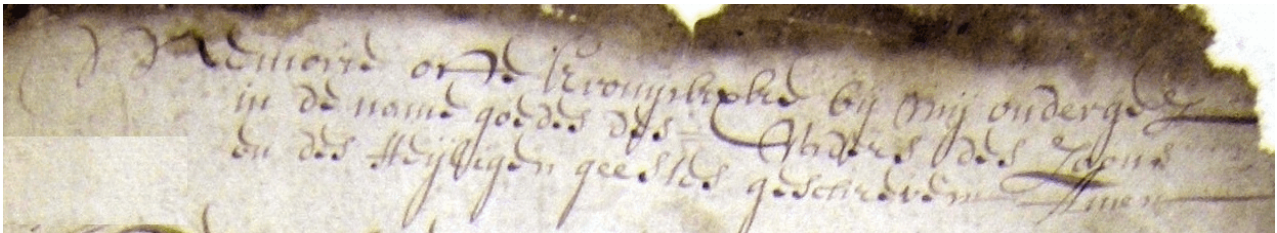 Memorie ofte kronijckxke bij mij onderge
in de name goedes des Vaders des Zoons
en des Heijligen geestes geschreven Amen